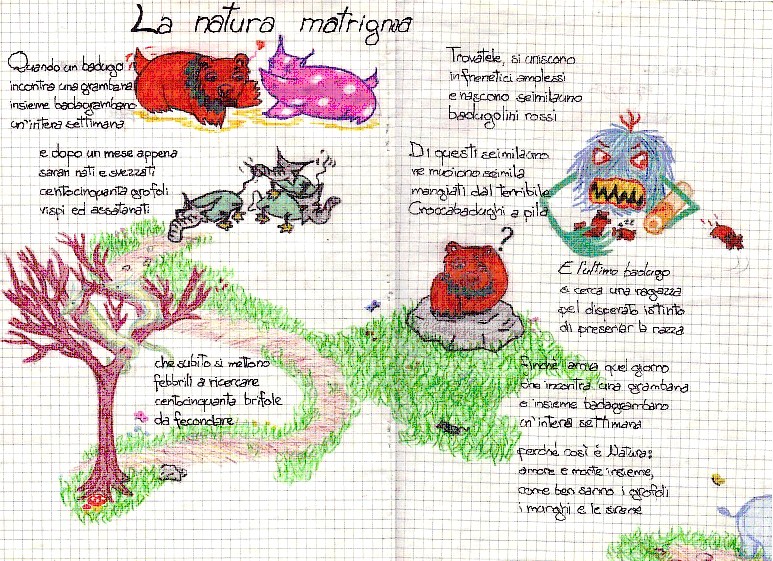 La natura matrigna
Quando un badugo
incontra una grambana
insieme badagrambano
un'intera settimana
e dopo un mese appena
saran nati e svezzati
centocinquanta grofoli
vispi ed assatanati
che subito si mettono
febbrili a ricercare
centocinquante brifole
da fecondare
Trovatele, si uniscono
in frenetici amplessi
e nascono seimilauno
badugolini rossi
Di questi seimilauno
ne muoiono seimila
mangiati dal terribile
Croccabadughi a pila
E l'ultimo badugo
si cerca una ragazza
pel disperato istinto
di preservar la razza
finché arriva quel giorno
che incontra una grambana
e insieme badagrambano
un'intera settimana
perché così é Natura:
amore e morte insieme,
come ben sanno i grofoli
i manghi e le sirene
?